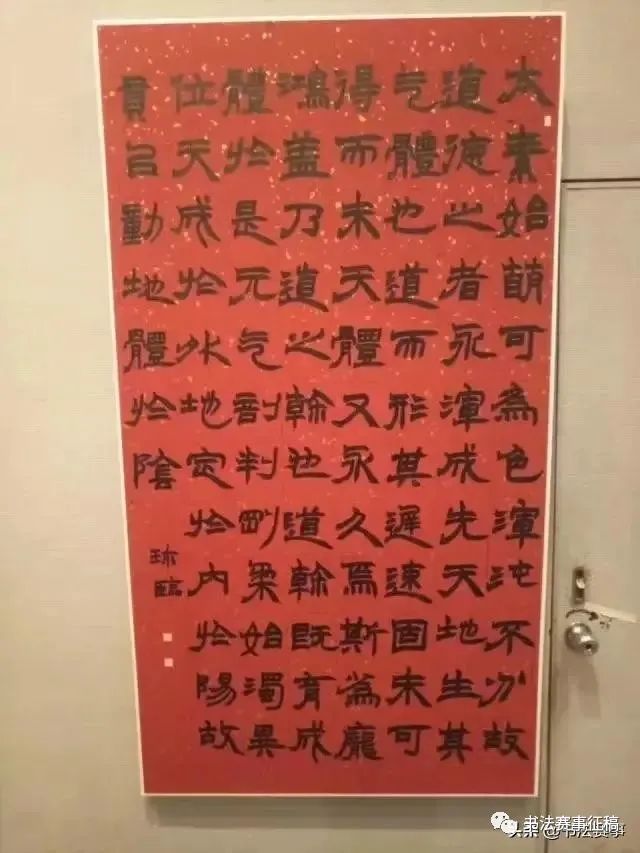 太素始萌可為色渾沌不分故
道德之者永渾成先天地生其
气體也道而形其遲速固未可
得而未天體又永久焉斯為龐
鴻蓋乃道之幹也道幹既育成
體於是元气剖判剛柔始濁異
位天成於外地定於內於陽故
貫以動地體於陰
臨
书法赛事征稿